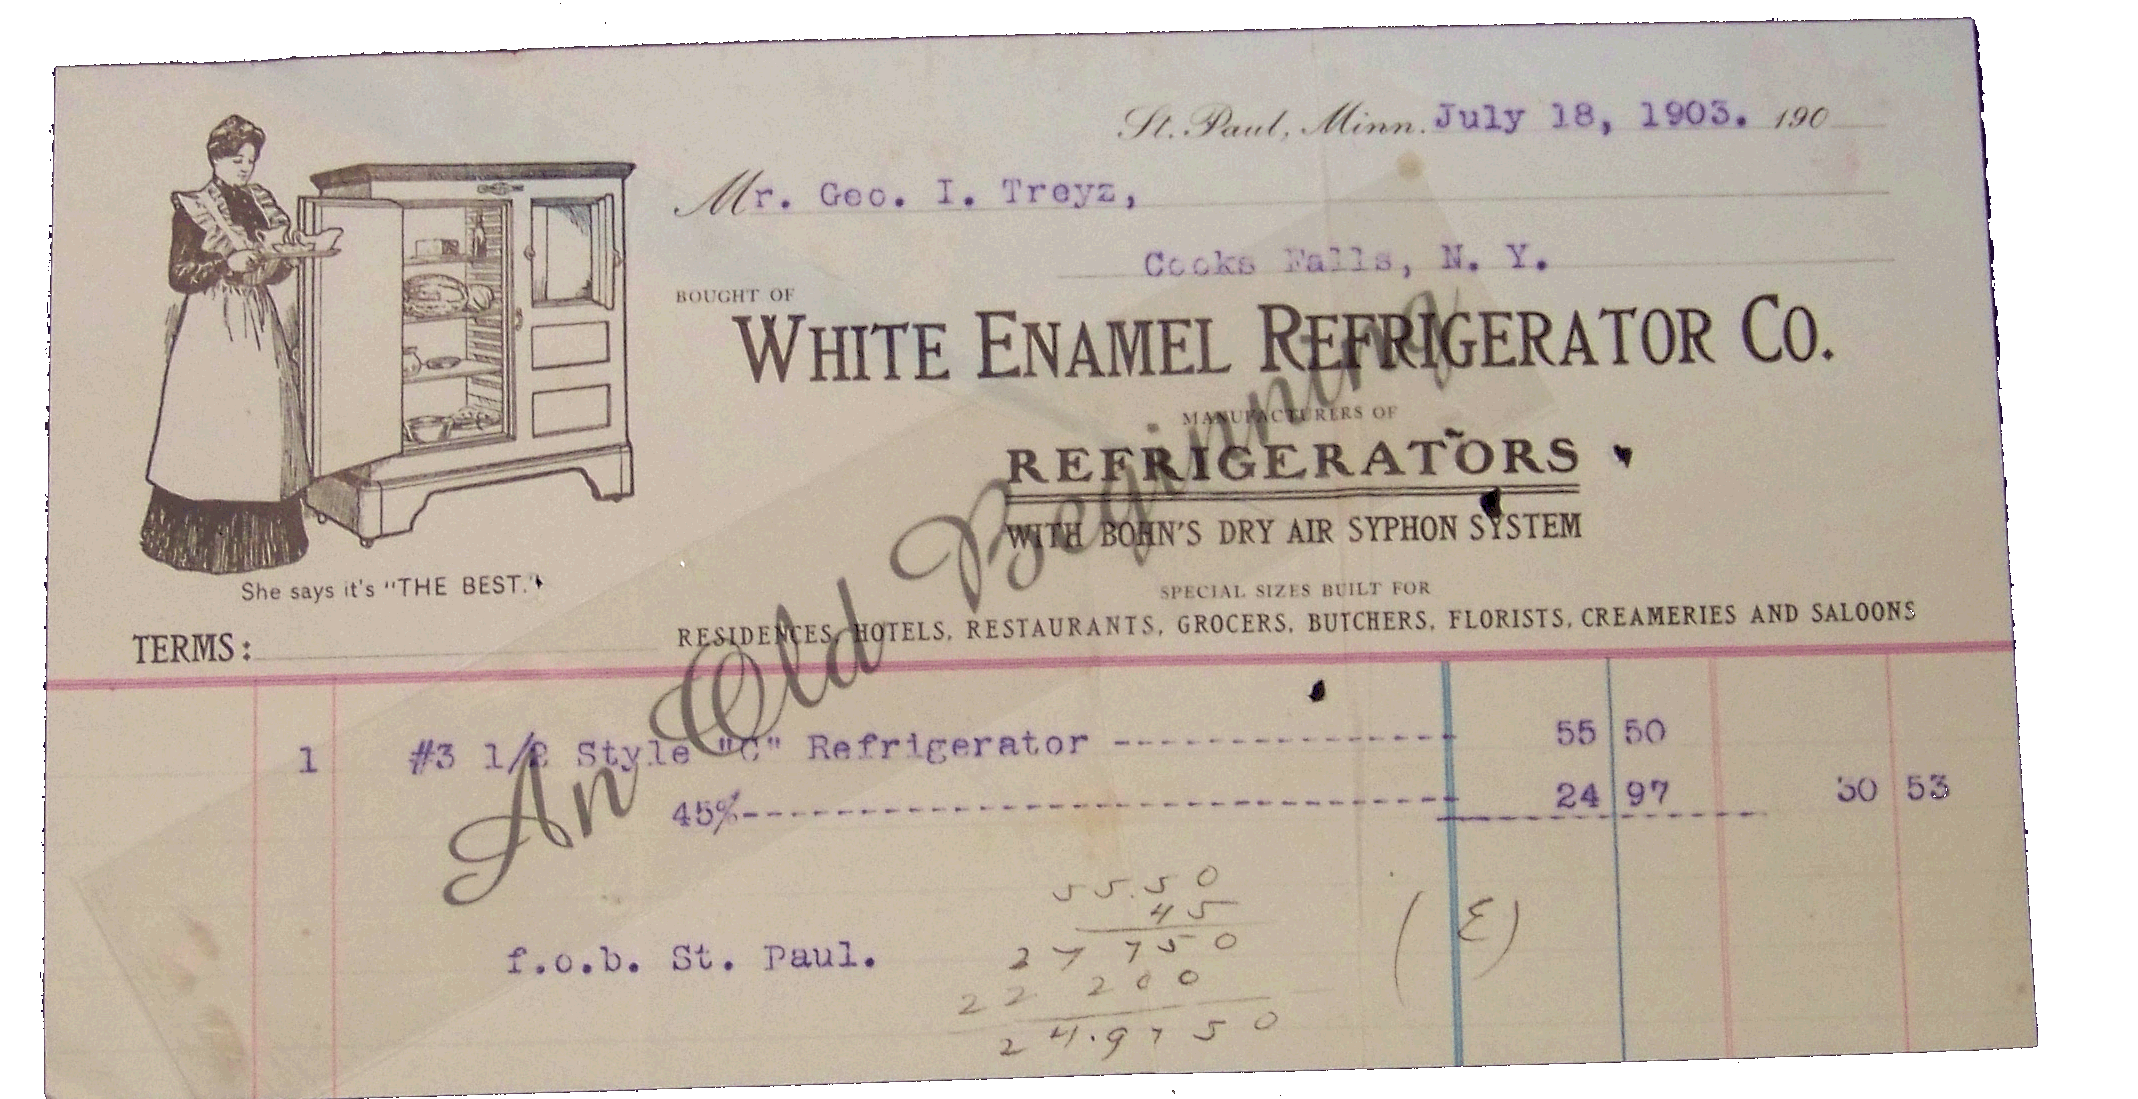 St. Paul, Minn. July 18, 1903. 190
Mr. Geo. I. Treyz,
Cooks Falls, N. Y.
BOUGHT OF
WHITE ENAMEL REFRIGERATOR CO.
MANUFACTURERS OF
REFRIGERATORS
WITH BOHN'S DRY AIR SYPHON SYSTEM
She says it's "THE BEST."
SPECIAL SIZES BUILT FOR
RESIDENCES, HOTELS, RESTAURANTS, GROCERS, BUTCHERS, FLORISTS, CREAMERIES AND SALOONS
TERMS:
1 #3 1/2 Style "C" Refrigerator ---------------- 55 50
45%---------------------------------- 24 97 30 53
An Old Beginning
f.o.b. St. Paul.
55.50
45
27 750
22 200
24.9750
(E)